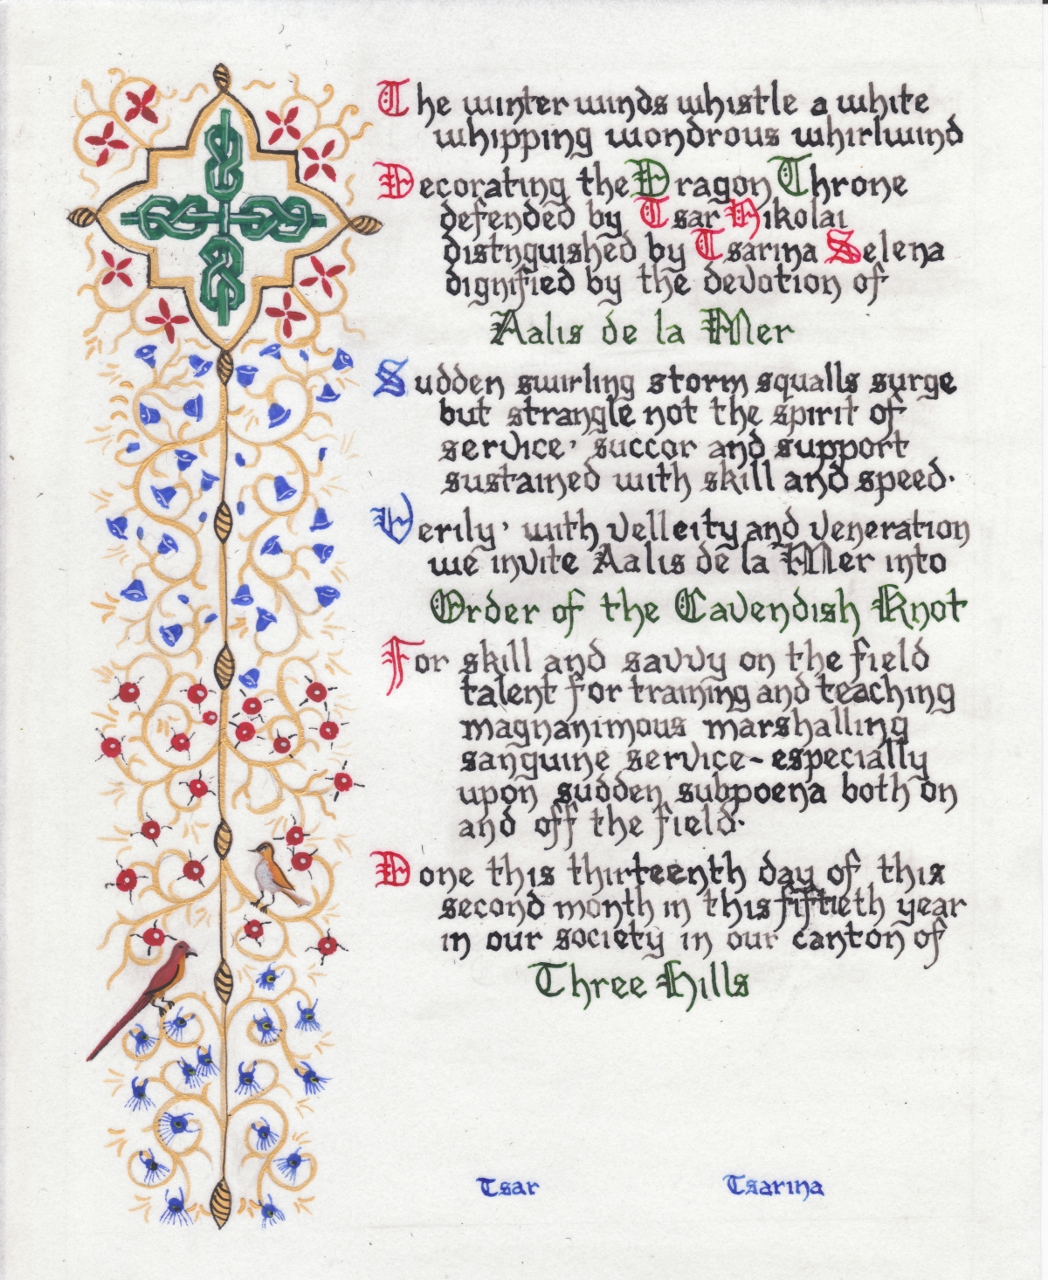 The winter winds whistle a white
whipping wondrous whirlwind
Decorating the Dragon Throne
defended by Tsar Nikolai
distnguished by Tsarina Selena
dignified by the devotion of
Aalis de la Mer
Sudden swirling storm squalls surge
but strangle not the spirit of
service, succor and support
sustained with skill and speed.
Verily, with velleity and veneration
we invite Aalis de la Mer into
Order of the Cavendish Knot
For skill and savvy on the field
talent for training and teaching
magnanimous marshalling
sanguine service - especially
upon sudden subpoena both on
and off the field.
Done this thirteenth day of this
second month in this fiftieth year
in our society in our canton of
Three Hills
Tsar Tsarina